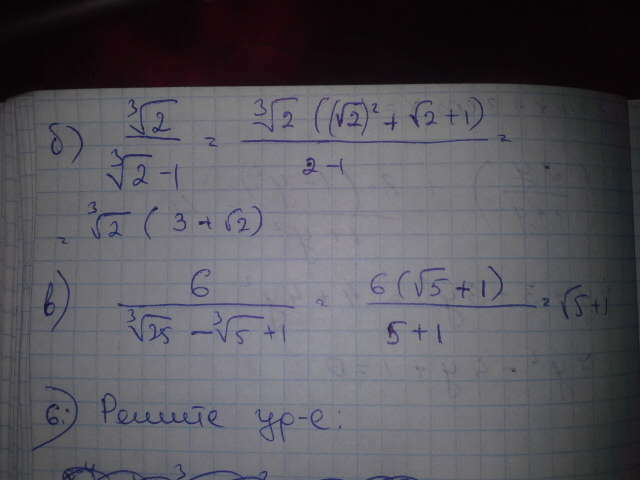 б) ∛2 / (∛2 - 1) = ∛2 ((√2)² + √2 + 1) / (2 - 1) =
= ∛2 (3 + √2)
в) 6 / (∛25 - ∛5 + 1) = 6(√5 + 1) / (5 + 1) = √5 + 1
6:) Решите ур-е: